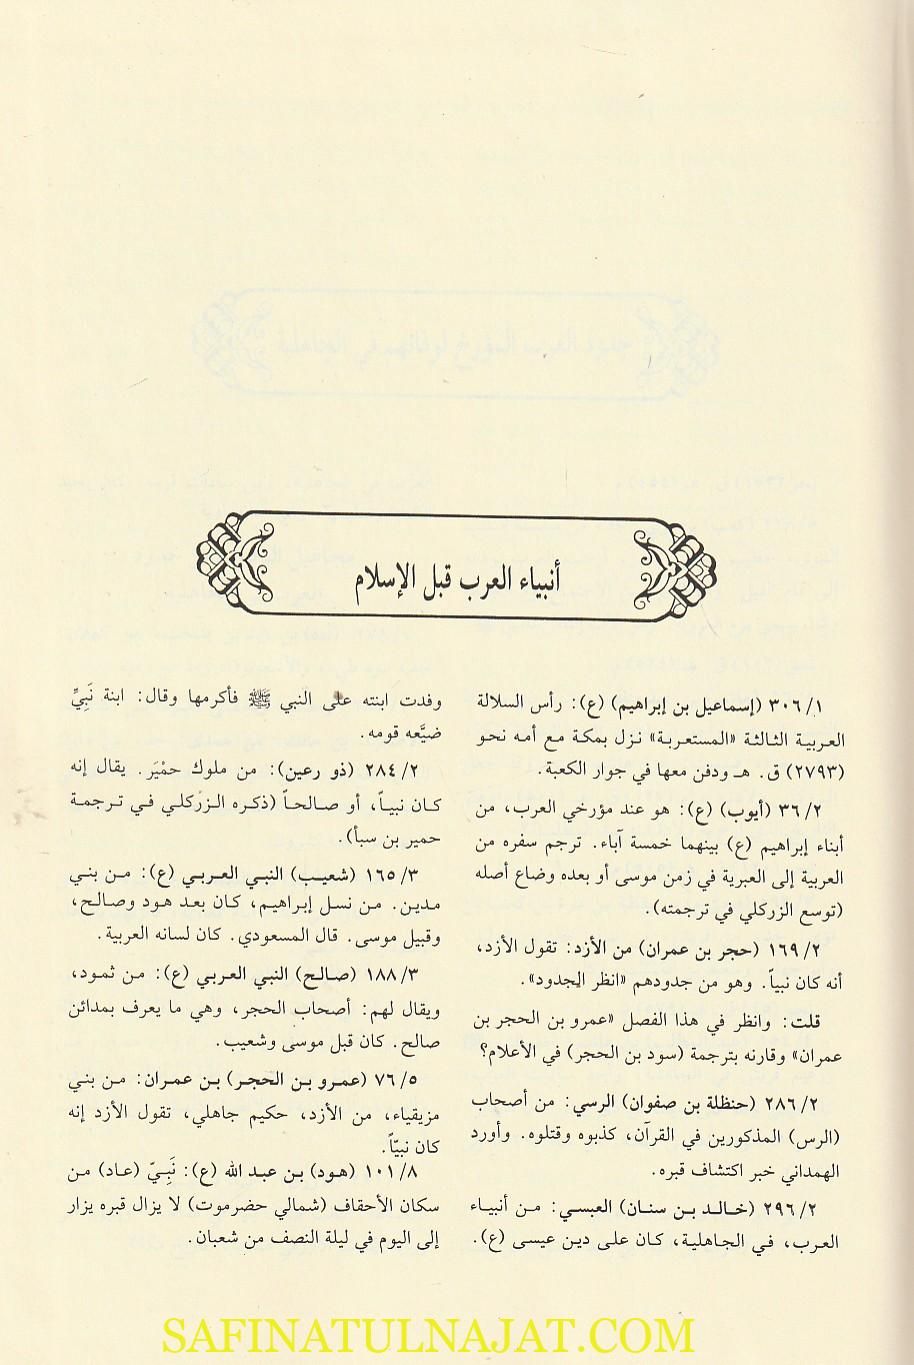 أنبياء العرب قبل الإسلام
٣٠٦/١ (إسماعيل بن إبراهيم) (ع): رأس السلالة
العربية الثالثة «المستعربة» نزل بمكة مع أمه نحو
(٢٧٩٣) ق. هـ ودفن معها في جوار الكعبة.
٣٦/٢ (أيوب) (ع): هو عند مؤرخي العرب، من
أبناء إبراهيم (ع) بينهما خمسة آباء. ترجم سفره من
العربية إلى العبرية في زمن موسى أو بعده وضاع أصله
(توسع الزركلي في ترجمته).
١٦٩/٢ (حجر بن عمران) من الأزد: تقول الأزد،
أنه كان نبياً. وهو من جدودهم «انظر الجدود».
قلت: وانظر في هذا الفصل «عمرو بن الحجر بن
عمران» وقارنه بترجمة (سود بن الحجر) في الأعلام؟
٢٨٦/٢ (حنظلة بن صفوان) الرسي: من أصحاب
(الرس) المذكورين في القرآن، كذبوه وقتلوه. وأورد
الهمداني خبر اكتشاف قبره.
٢٩٦/٢ (خالد بن سنان) العبسي: من أنبياء
العرب، في الجاهلية، كان على دين عيسى (ع).
وفدت ابنته على النبي ﷺ فأكرمها وقال: ابنة نَبِيٍّ
ضيَّعه قومه.
٢٨٤/٢ (ذو رعين): من ملوك حمْيَر. يقال إنه
كان نبياً، أو صالحاً (ذكره الزركلي في ترجمة
حمير بن سبأ).
١٦٥/٣ (شعيب) النبي العربي (ع): من بني
مدين. من نسل إبراهيم، كان بعد هود وصالح،
وقبيل موسى. قال المسعودي. كان لسانه العربية.
١٨٨/٣ (صالح) النبي العربي (ع): من ثمود،
ويقال لهم: أصحاب الحجر، وهي ما يعرف بمدائن
صالح. كان قبل موسى وشعيب.
٧٦/٥ (عمرو بن الحجر) بن عمران: من بني
مزيقياء، من الأزد، حكيم جاهلي، تقول الأزد إنه
كان نبيّاً.
١٠١/٨ (هود) بن عبد الله (ع): نَبِيّ (عاد) من
سكان الأحقاف (شمالي حضرموت) لا يزال قبره يزار
إلى اليوم في ليلة النصف من شعبان.
SAFINATULNAJAT.COM